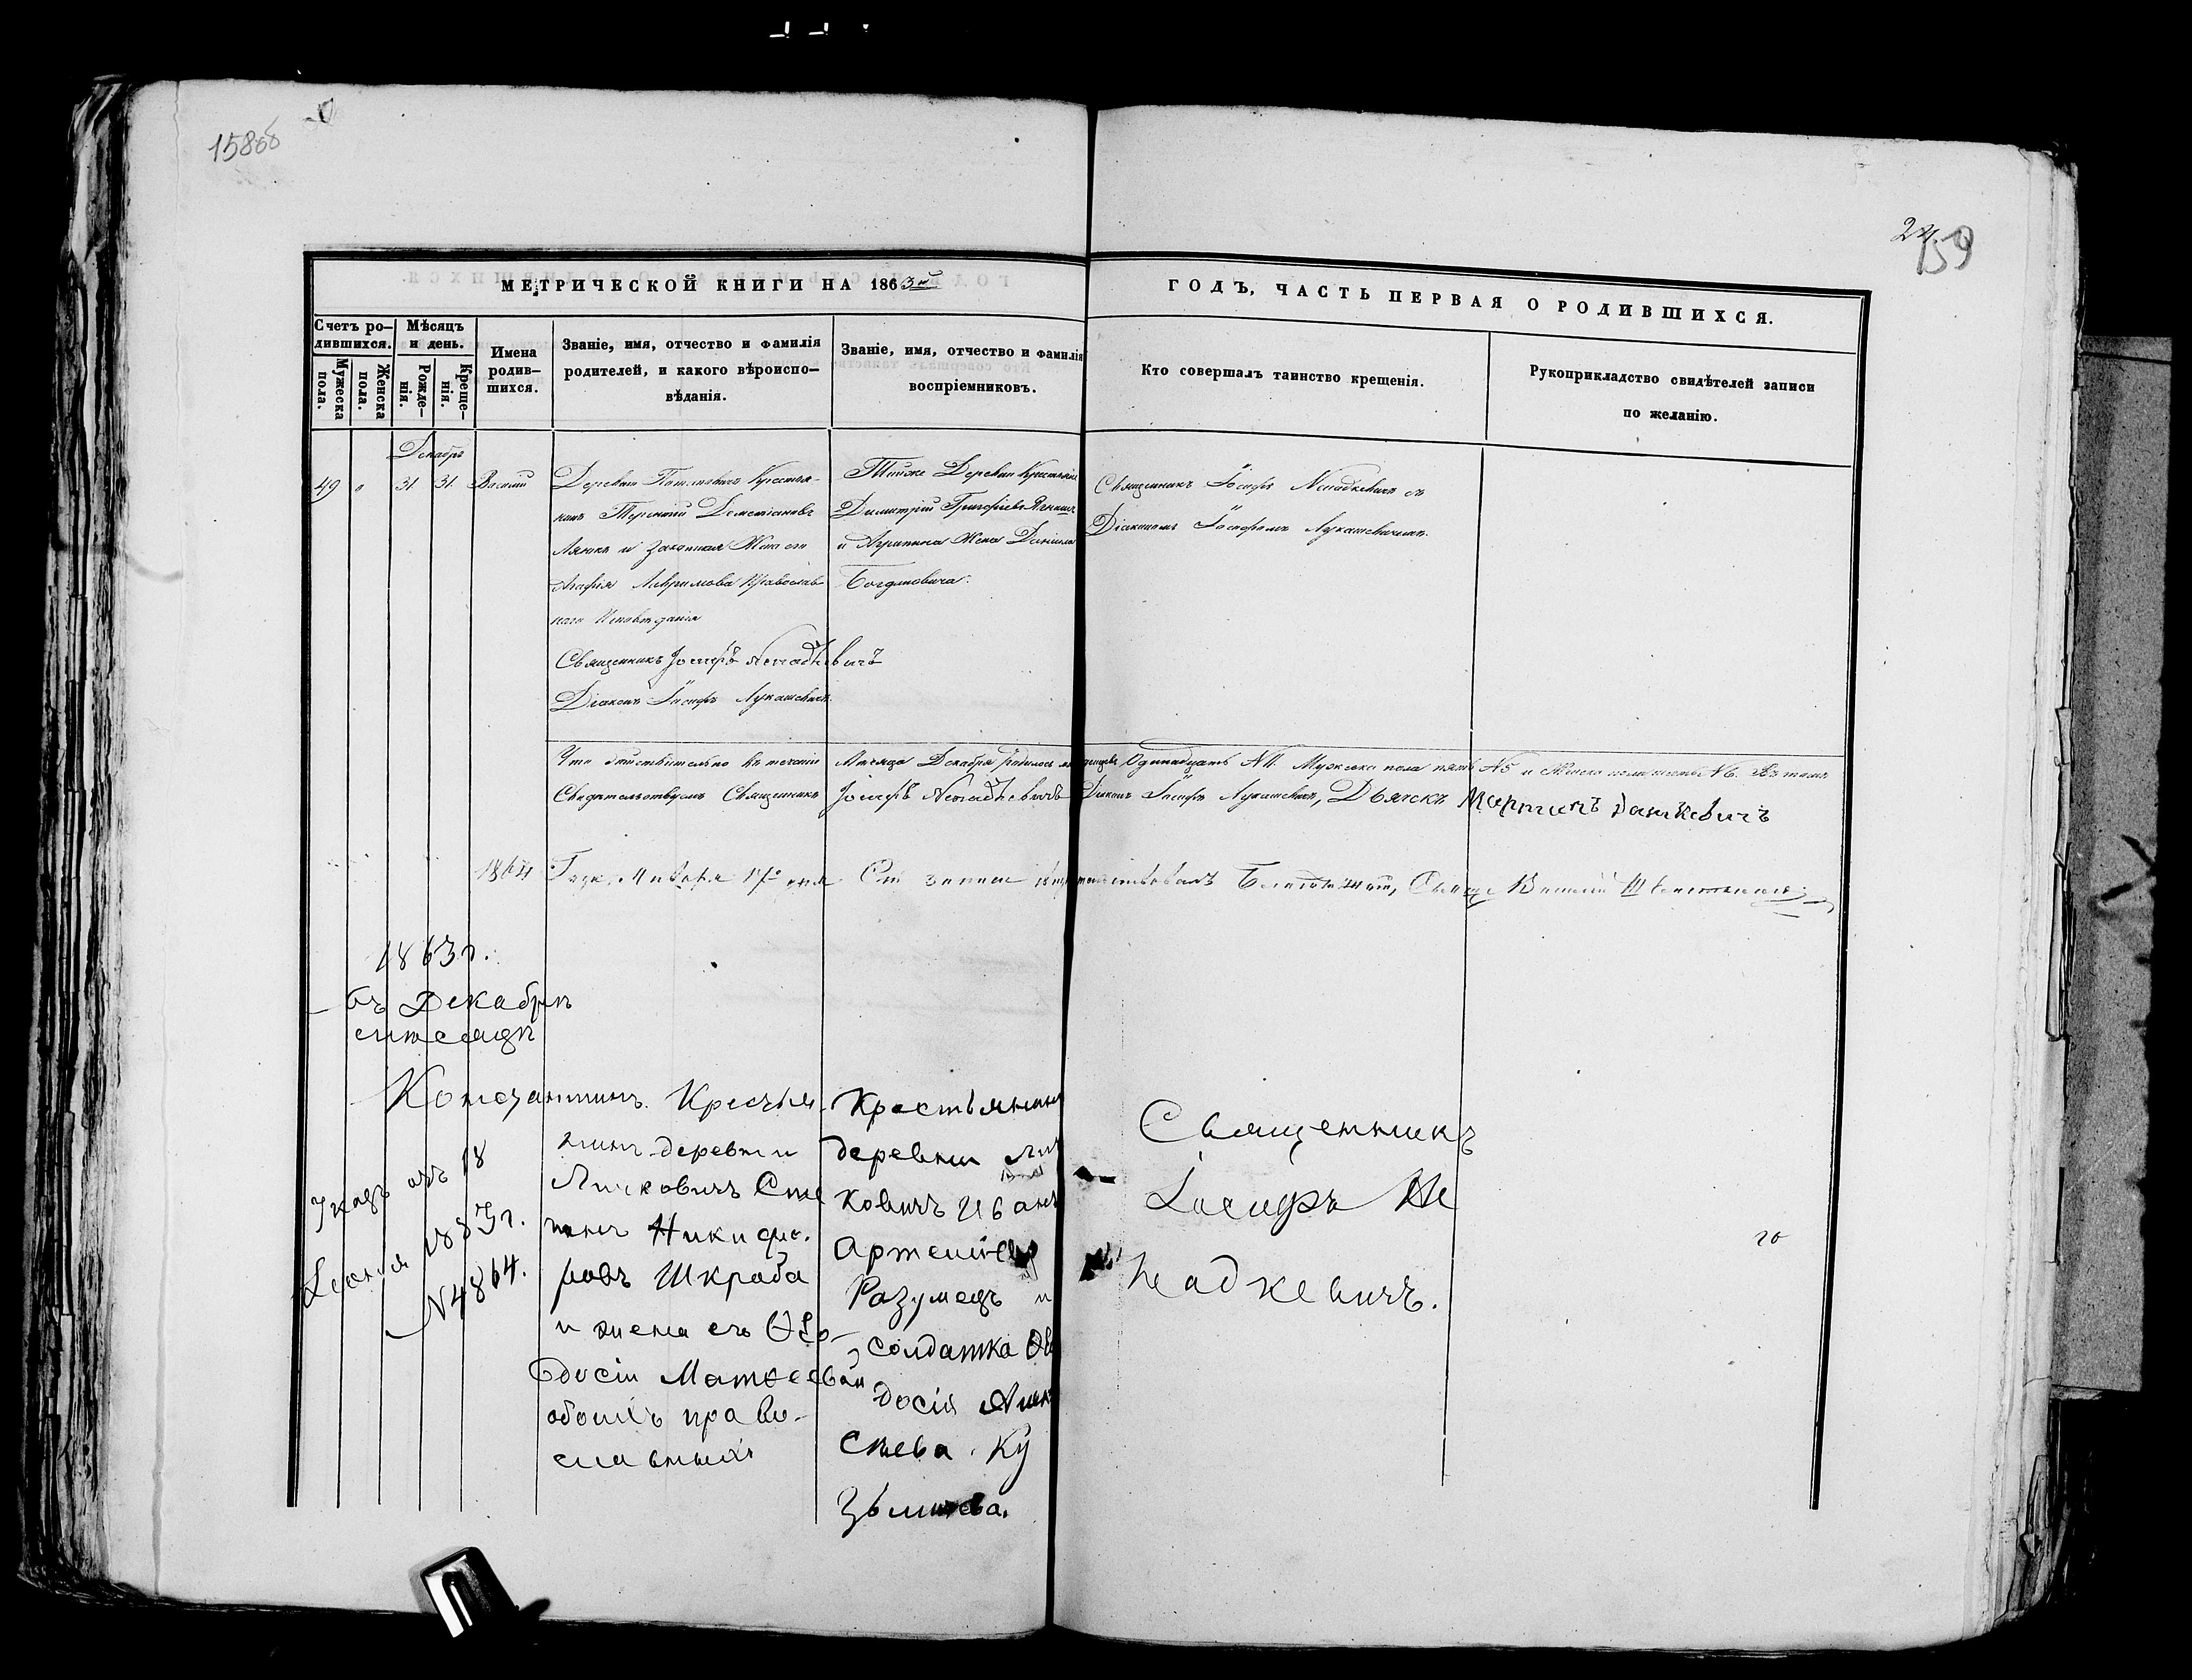 158об
24.
159
МЕТРИЧЕСКОЙ КНИГИ НА 1863й
ГОДЪ, ЧАСТЬ ПЕРВАЯ О РОДИВШИХСЯ.
Счетъ ро-
дившихся.
Мужеска
пола.
Женска
пола.
Мѣсяцъ
и день.
Рожде-
нія.
Креще-
нія.
Имена
родив-
шихся.
Званіе, имя, отчество и фамилія
родителей, и какого вѣроиспо-
вѣданія.
Званіе, имя, отчество и фамилія
воспріемниковъ.
Кто совершалъ таинство крещенія.
Рукоприкладство свидѣтелей записи
по желанію.
Декабрь
49 " 31. 31. Василій
Деревни Крестья-
нинъ Терентій
и Законная Жена его
Агафія Православ-
наго Исповѣданія
Священникъ Іосифъ Ненадкевичъ
Діаконъ Іосифъ Лукашевичъ.
Тойже Деревни Крестьянинъ
Димитрій Григоріевъ
и Агрипина Жена Даніила
Богдановича.
Священникъ Іосифъ Ненадкевичъ съ
Діакономъ Іосифомъ Лукашевичемъ.
Что дѣйствительно въ теченіи Мѣсяца Декабря родилось младенцевъ Одинадцать №11. Мужеска пола пять №5 и Женска пола шесть №6. Въ томъ
Свидѣтельствуемъ Священникъ Іосифъ Ненадкевичъ Діаконъ Іосифъ Лукашевичъ, Дьячокъ Мартинъ
1864 Года, Января 17го дня Сіи записи Василій
1863 г.
въ Декабрѣ
мѣсяцѣ
Константинъ.
Указъ отъ 18
N4864.
Крестья-
нинъ деревни
Личковичъ Сте
панъ Никифо.
ровъ Шкраба
и жена его Ѳео-
досія Матвеева
обоихъ право-
славныхъ
Крестьянинъ
деревни Лич
ковичъ Иванъ
Артеміевъ
Разумецъ и
солдатка Ѳео
досія Алек
сѣева. Ку
зьмичева.
Священникъ
Іосифъ Не
надкевичъ.